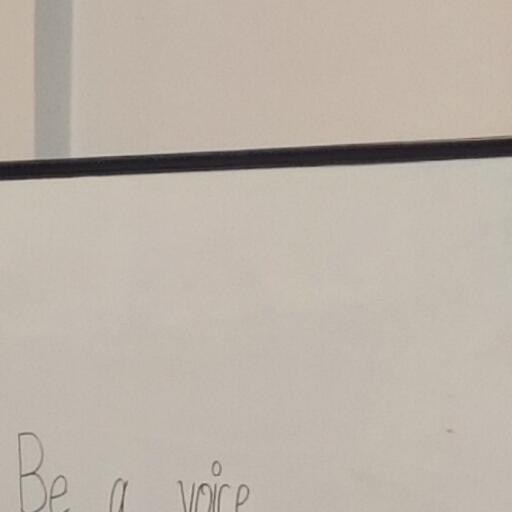 Be a voice